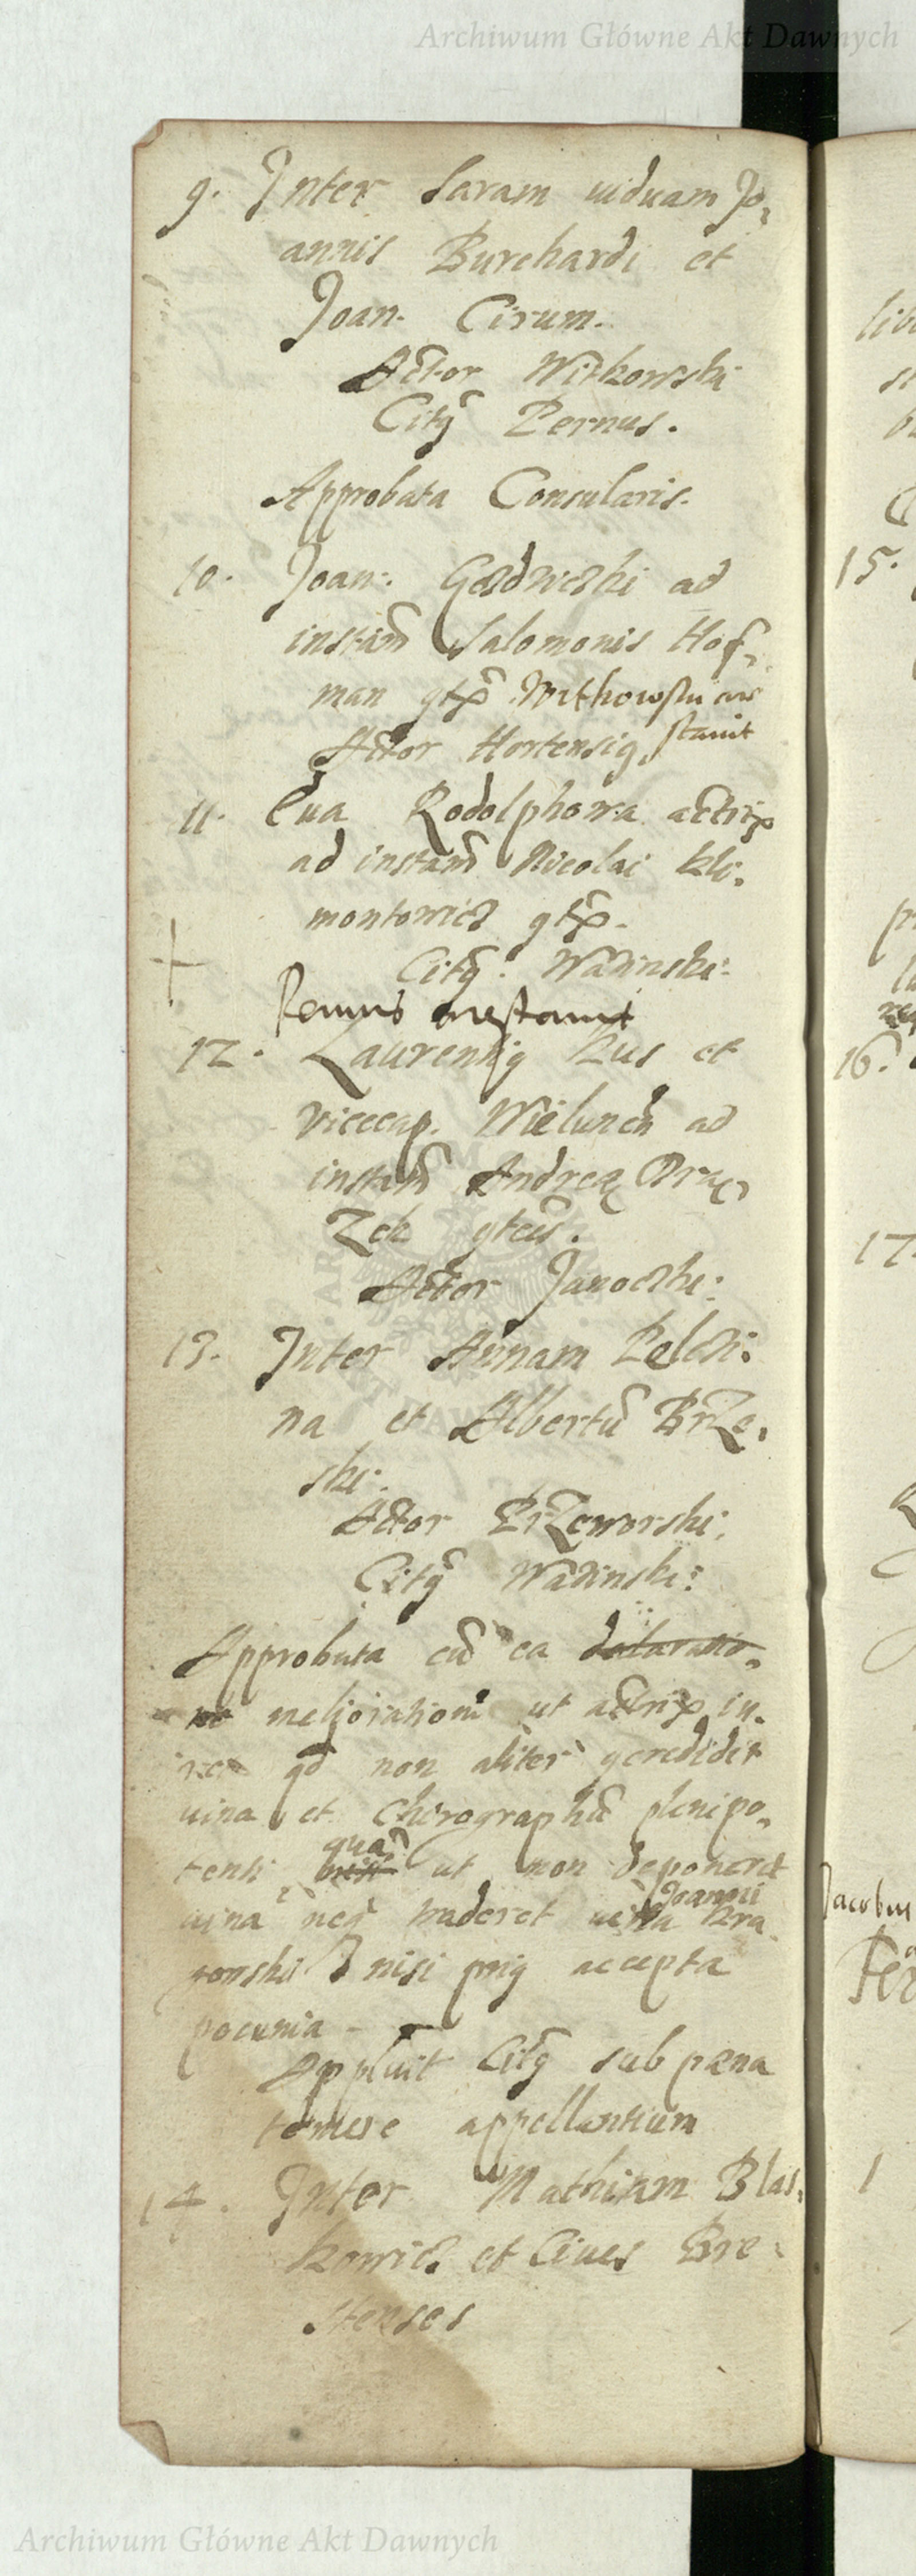 Archiwum Główne Akt Dawnych
9. Inter Saram viduam Jo,
annis Burchardi et
Joan. Cirum.
Actor Witkowski
Citq Pernus.
Approbata Consularis.
10. Joan: Gozdwiczki ad
instam Salomonis Hof,
man gtx Witkowski are
stauit
Actor Hortensiq,
11. Eua Rodolphowa actrix
ad instam Nicolai Kli,
montowicz gtx.
Citq. Wadinski:
arestauit
12. Laurentiq Kus et
vicecap. Wielunen ad
instam Andreæ
Actor Janoczki:
13. Inter Annam Pelczi:
na et Albertu Brze,
ski:
Actor Przeworski:
Citq Wadinski:
Approbata cu ea declaratio,
ne melioration ut actrix iu,
ret qd non aliter credidit
uina et Chirographu plenipo,
tenti quam ut non deponeret
uina neq traderet Joanni
Kra
kowski nisi priq accepta
pecunia -
Appluit Citq sub pæna
temere appellantium
14. Inter Mathiam Blas,
kowicz et Ciues Bre:
stenses
15.
16.
17
Jacobus
Archiwum Główne Akt Dawnych